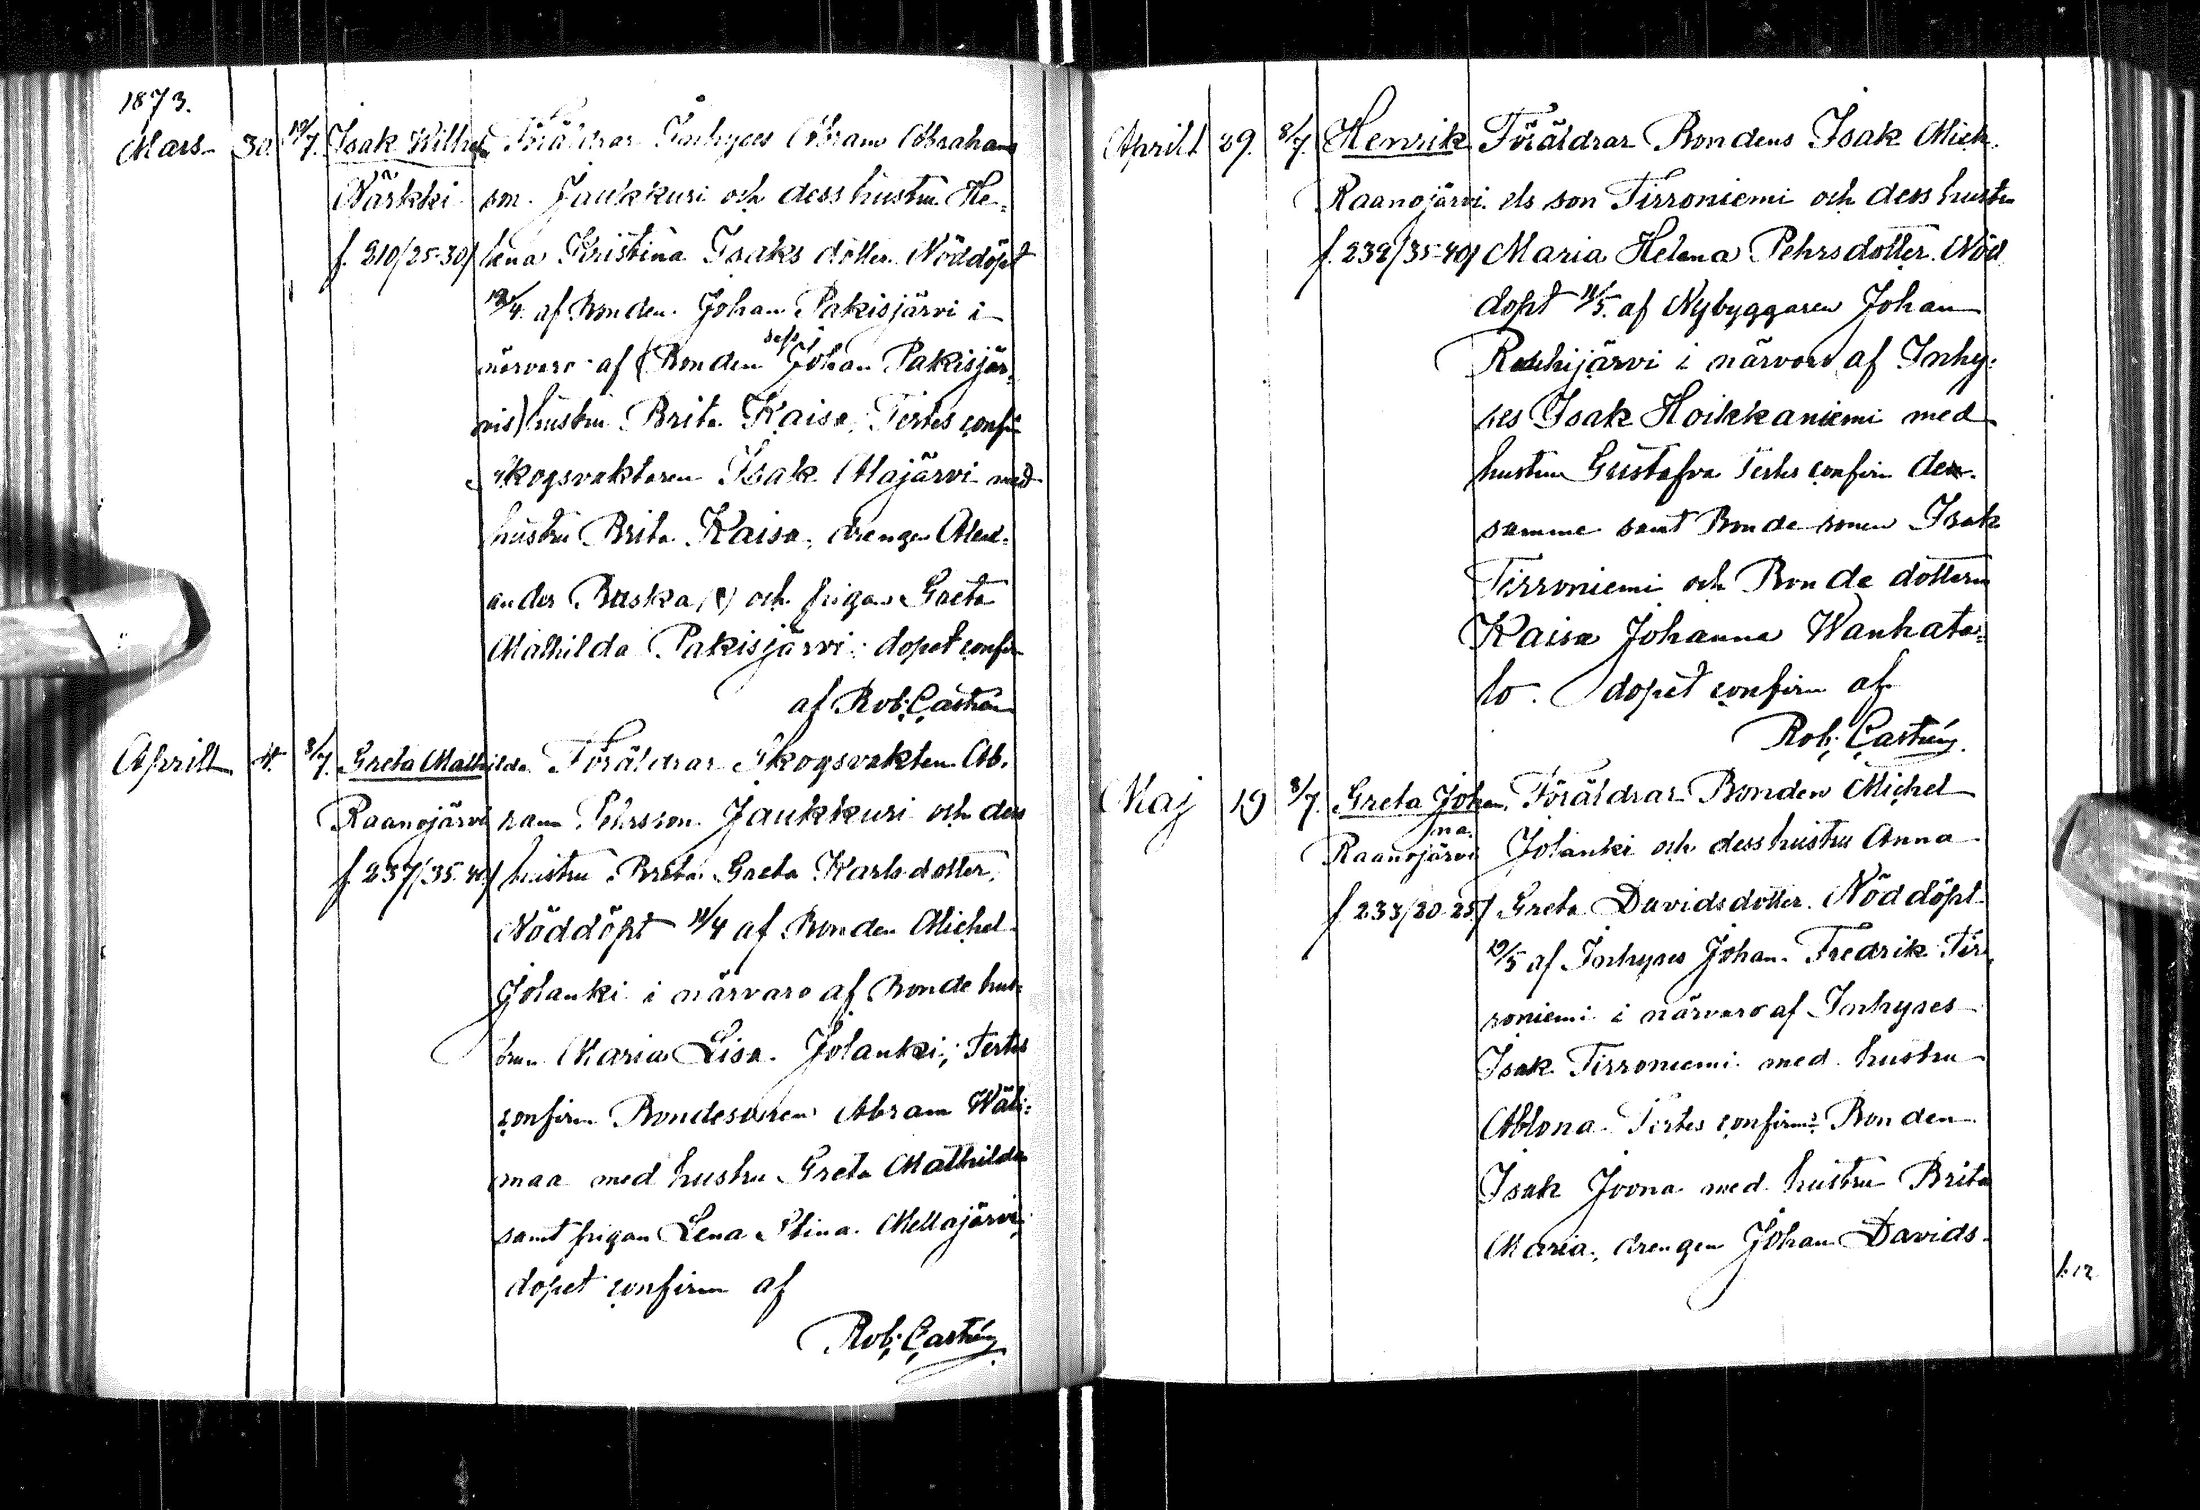 1873.
Mars 30. 10/7. Isak Wilhelm Föräldrar Inhyses Abram Abrahams
Närkki son Jaukkuri och dess hustru He-
f. 210/25-30/ lena Kristina Isaks dotter. Nöddöpt
/4. af Bonden Johan Pakisjärvi i
närvaro af (Bonden Johan Pakisjär-
vis) hustru Brita Kaisa; Testes confir
skogsvaktaren Isak Alajärvi med
hustru Brita Kaisa, drengen Alex-
ander Ruska (?) och pigan Greta
Mathilda Pakisjärvi; dopet confir
af Rob. Castrén
Aprill 4. 8/7. Greta Mathilda Föräldrar Skogsvakten Ab-
Raanojärvi ram Pehrsson Jaukkuri och dess
f. 237/35-40/ hustru Brita Greta Karlsdotter.
Nöddöpt 11/4 af Bonden Michel
Jolanki i närvaro af Bonde hus-
trun Maria Lisa Jolanki; Testes
confirm Bondesonen Abram Wäli-
maa med hustru Greta Mathilda
samt pigan Lena Stina Mellajärvi;
dopet confirm af
Rob. Castrén
Aprill 29. 8/7. Henrik Föräldrar Bondens Isak Mich-
Raanojärvi els son Tirroniemi och dess hustru
f. 232/35-40/ Maria Helena Pehrsdotter. Nöd
döpt 11/5. af Nybyggaren Johan
Rouhijärvi i närvaro af Inhy-
ses Isak Hoikkaniemi med
hustru Gustafva Testes confirm den-
samme samt Bonde sonen Isak
Tirroniemi och Bonde dottern
Kaisa Johanna Wanhata-
lo. dopet confirm af
Rob. Castrén
Maj 19 8/7. Greta Johan Föräldrar Bonden Michel
na.
Raanojärvi Jolanki och dess hustru Anna
f. 233/20-25/ Greta Davidsdotter. Nöddöpt
19/5 af Inhyses Johan Fredrik Tir-
roniemi i närvaro af Inhyses
Isak Tirroniemi med hustru
Ablona. Testes confirm: Bonden
Isak Joona med hustru Brita
Maria, drengen Johan Davids-
1:12